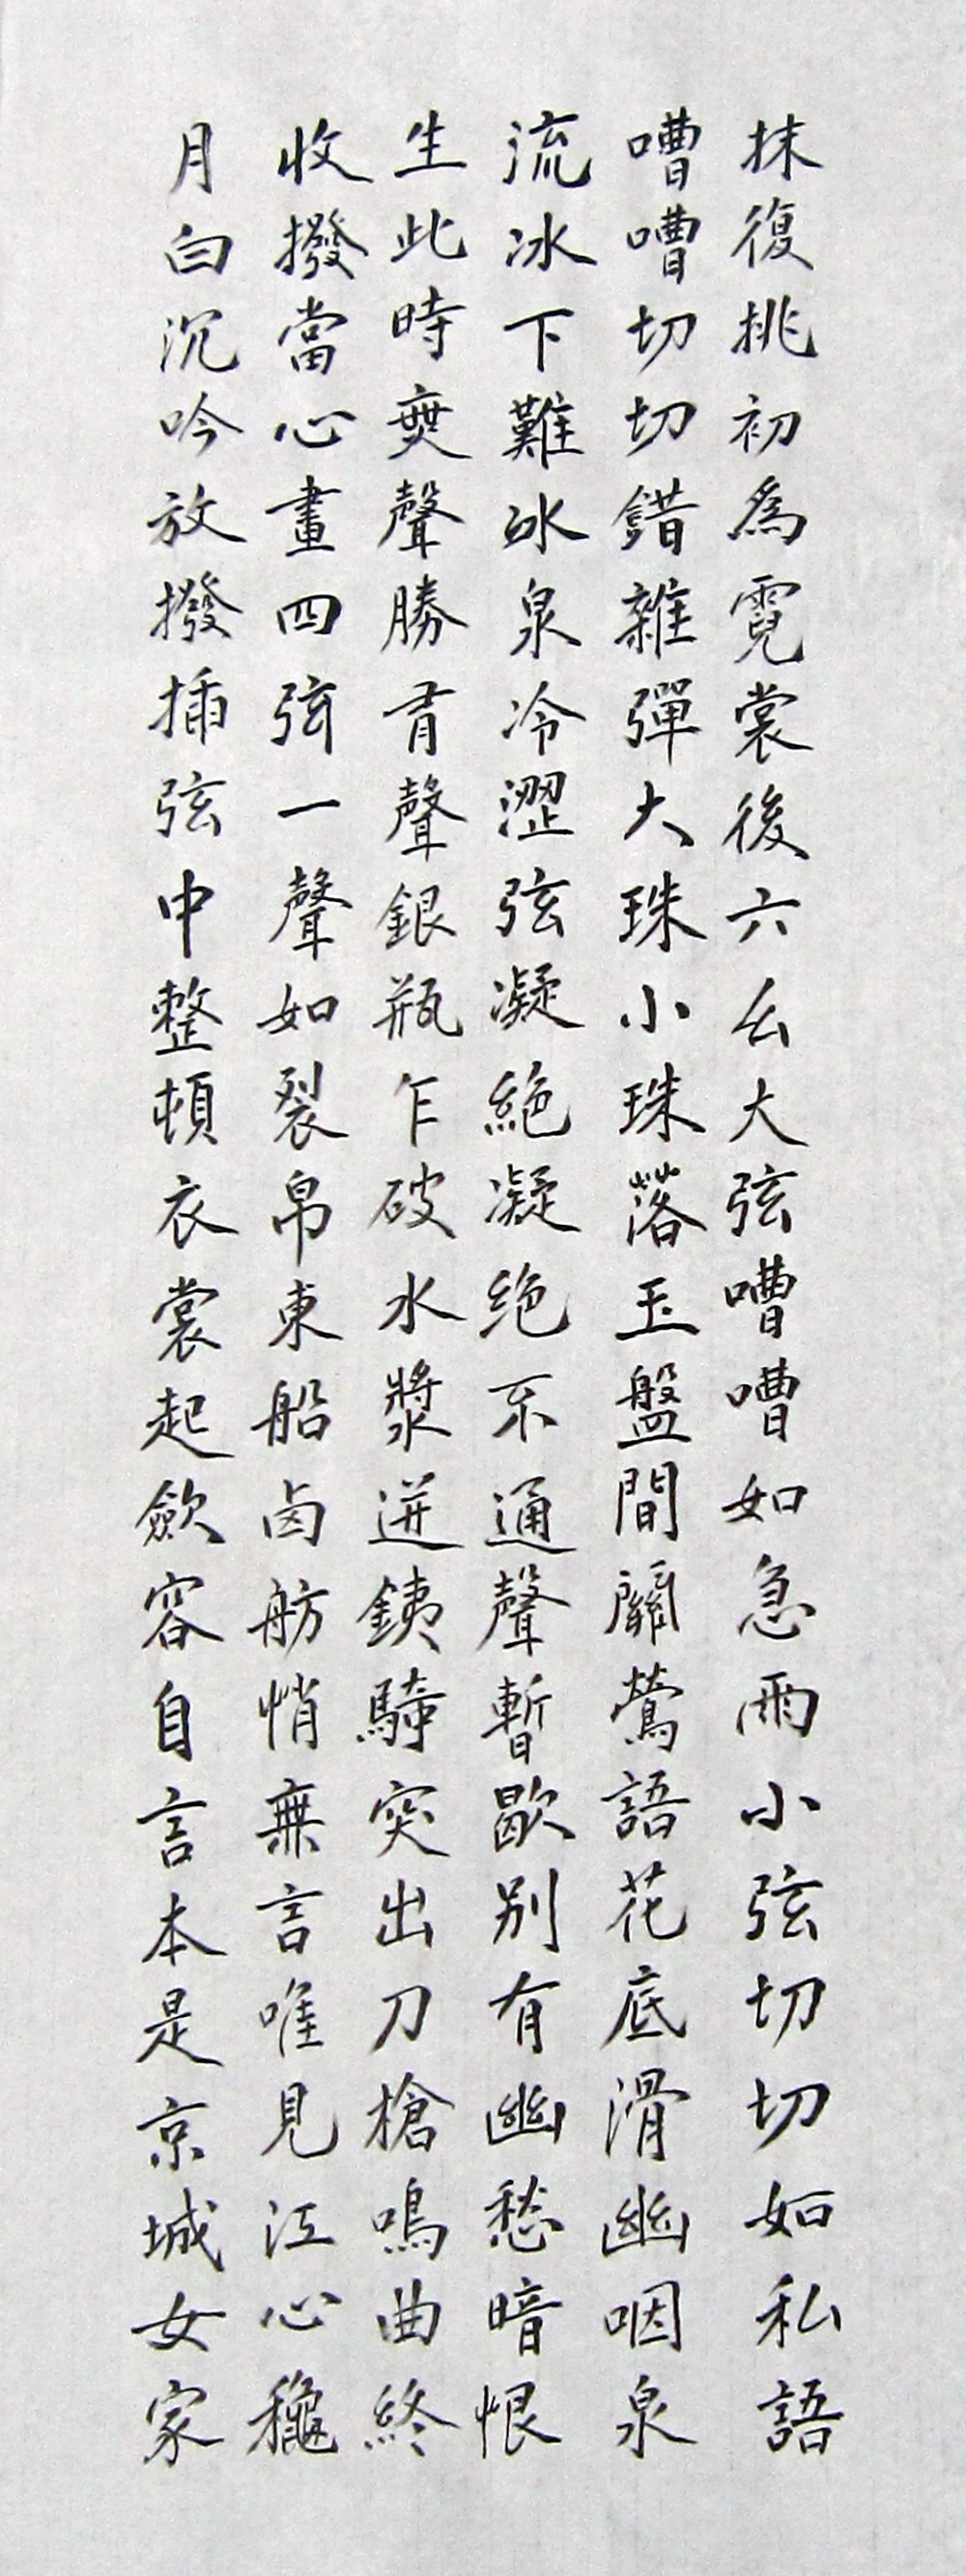 抹復挑初為霓裳後六幺大弦嘈嘈如急雨小弦切切如私語
嘈嘈切切錯雜彈大珠小珠落玉盤間關鶯語花底滑幽咽泉
流冰下難冰泉冷澀弦凝絕凝絕不通聲暫歇別有幽愁暗恨
生此時無聲勝有聲銀瓶乍破水漿迸鐵騎突出刀槍鳴曲終
收撥當心畫四弦一聲如裂帛東船西舫悄無言唯見江心秋
月白沉吟放撥插弦中整頓衣裳起斂容自言本是京城女家